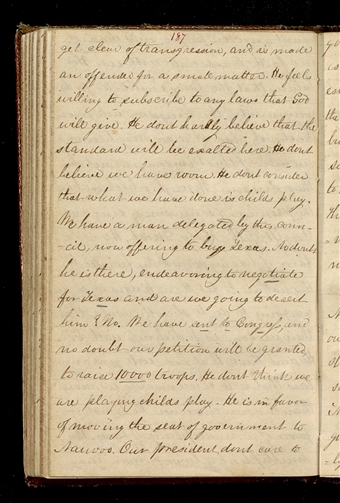 187
get clear of transgression, and is made
an offender for a small matter. He feels
willing to subscribe to any laws that God
will give. He dont hardly believe that the
standard will be exalted here. He dont
believe we have room. He dont consider
that what we have done is childs play.
We have a man delegated by this coun-
-cil, now offering to buy Texas. No doubt
he is there, endeavoring to negotiate
for Texas and are we going to desert
him? No. We have sent to Congress, and
no doubt our petition will be granted
to raise 10000 troops. He dont think we
are playing childs play. He is in favor
of moving the seat of government to
Nauvoo. Our president dont care to